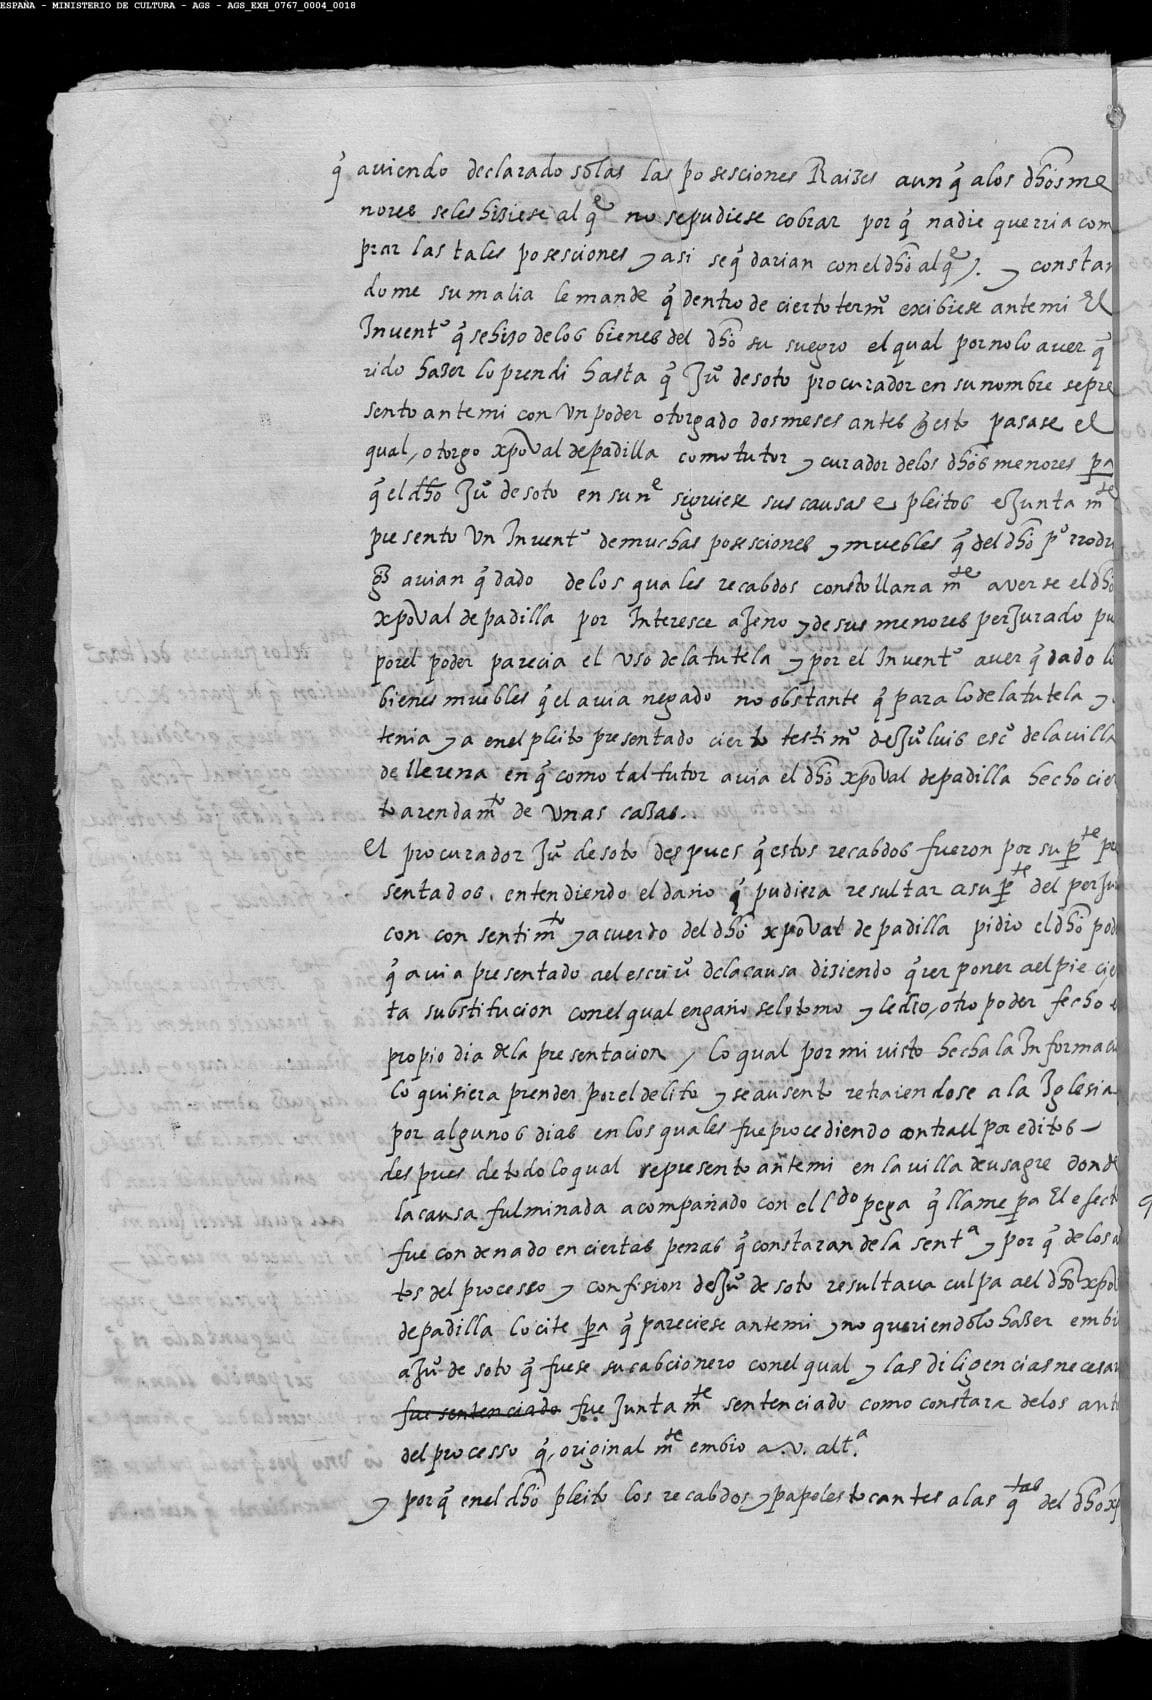 ESPAÑA - MINISTERIO DE CULTURA - AGS - AGS_EXH_0767_0004_0018
q̃ auiendo declarado solas las posesciones Raizes aunq̃ alos dhos me
nores seles hiziese alqe no sepudiese cobrar porq̃ nadie querria com
prar las tales posesciones y asi seq̃darian conel dho alqe). y constan
dome su malia le mande q̃ dentro de cierto termo exibiese ante mi El
Inventº q̃ sehizo delos bienes del dho su suegro el qual por nolo auer q̃
rido hazer lo prendi hasta q̃ Juº de soto procurador en su nombre sepre
sento ante mi con Vn poder otorgado dos meses antes q̃ esto pasase el
qual, otorgo xpoual de padilla como tutor y curador delos dhos menores pa
q̃ el dho Juº de soto en su ne siguiese sus causas e pleitos e Junta mte
presento Vn Inventº de muchas posesciones y muebles q̃ del dho pº rrodri
gz auian q̃dado delos quales recabdos consto llana mte auerse el dho
xpoual de padilla por Interesce ajeno y de sus menores perjurado pu
porel poder parecia el Vso dela tutela y por el Inventº auer q̃dado lo
bienes muebles q̃ el auia negado no obstante q̃ para lo de la tutela y
tenia ya enel pleito presentado cierto testimº de Juº luis escº dela villa
de llerena en q̃ como tal tutor auia el dho xpoual de padilla hecho cier
to arendamto de Vnas casas.
El procurador Juº de soto despues q̃ estos recabdos fueron por su pte pre
sentados, entendiendo el daño q̃ pudiera resultar asu pte del perju
con consentimto y acuerdo del dho xpoual de padilla pidio el dho pod
q̃ auia presentado ael escriuº dela causa diziendo q̃rer poner ael pie cier
ta substitucion conel qual engaño selo tomo y le dio, otro poder fecho e
propio dia dela presentacion / lo qual por mi visto hecha la Informacio
lo quisiera prender porel delito y se ausento retraiendose a la Iglesia
por algunos dias en los quales fue procediendo contra el por editos -
despues de todo lo qual represento ante mi en la villa de usagre donde
la causa fulminada acompañado con el ldo pega q̃ llame pa El efecto
fue condenado en ciertas penas q̃ constaran de la senta y por q̃ de los a
tos del processo y confision de Juº de soto resultaua culpa ael dho xpo
de padilla lo cite pa q̃ pareciese ante mi y no queriendolo hazer embi
a Juº de soto q̃ fuese su cabcionero conel qual y las diligencias necesar
fue sentenciado fue Junta mte sentenciado como constara delos auto
del processo q̃, original mte embio a. v. alta.
y porq̃ enel dho pleito los recabdos y papeles tocantes a las qtas del dho xp